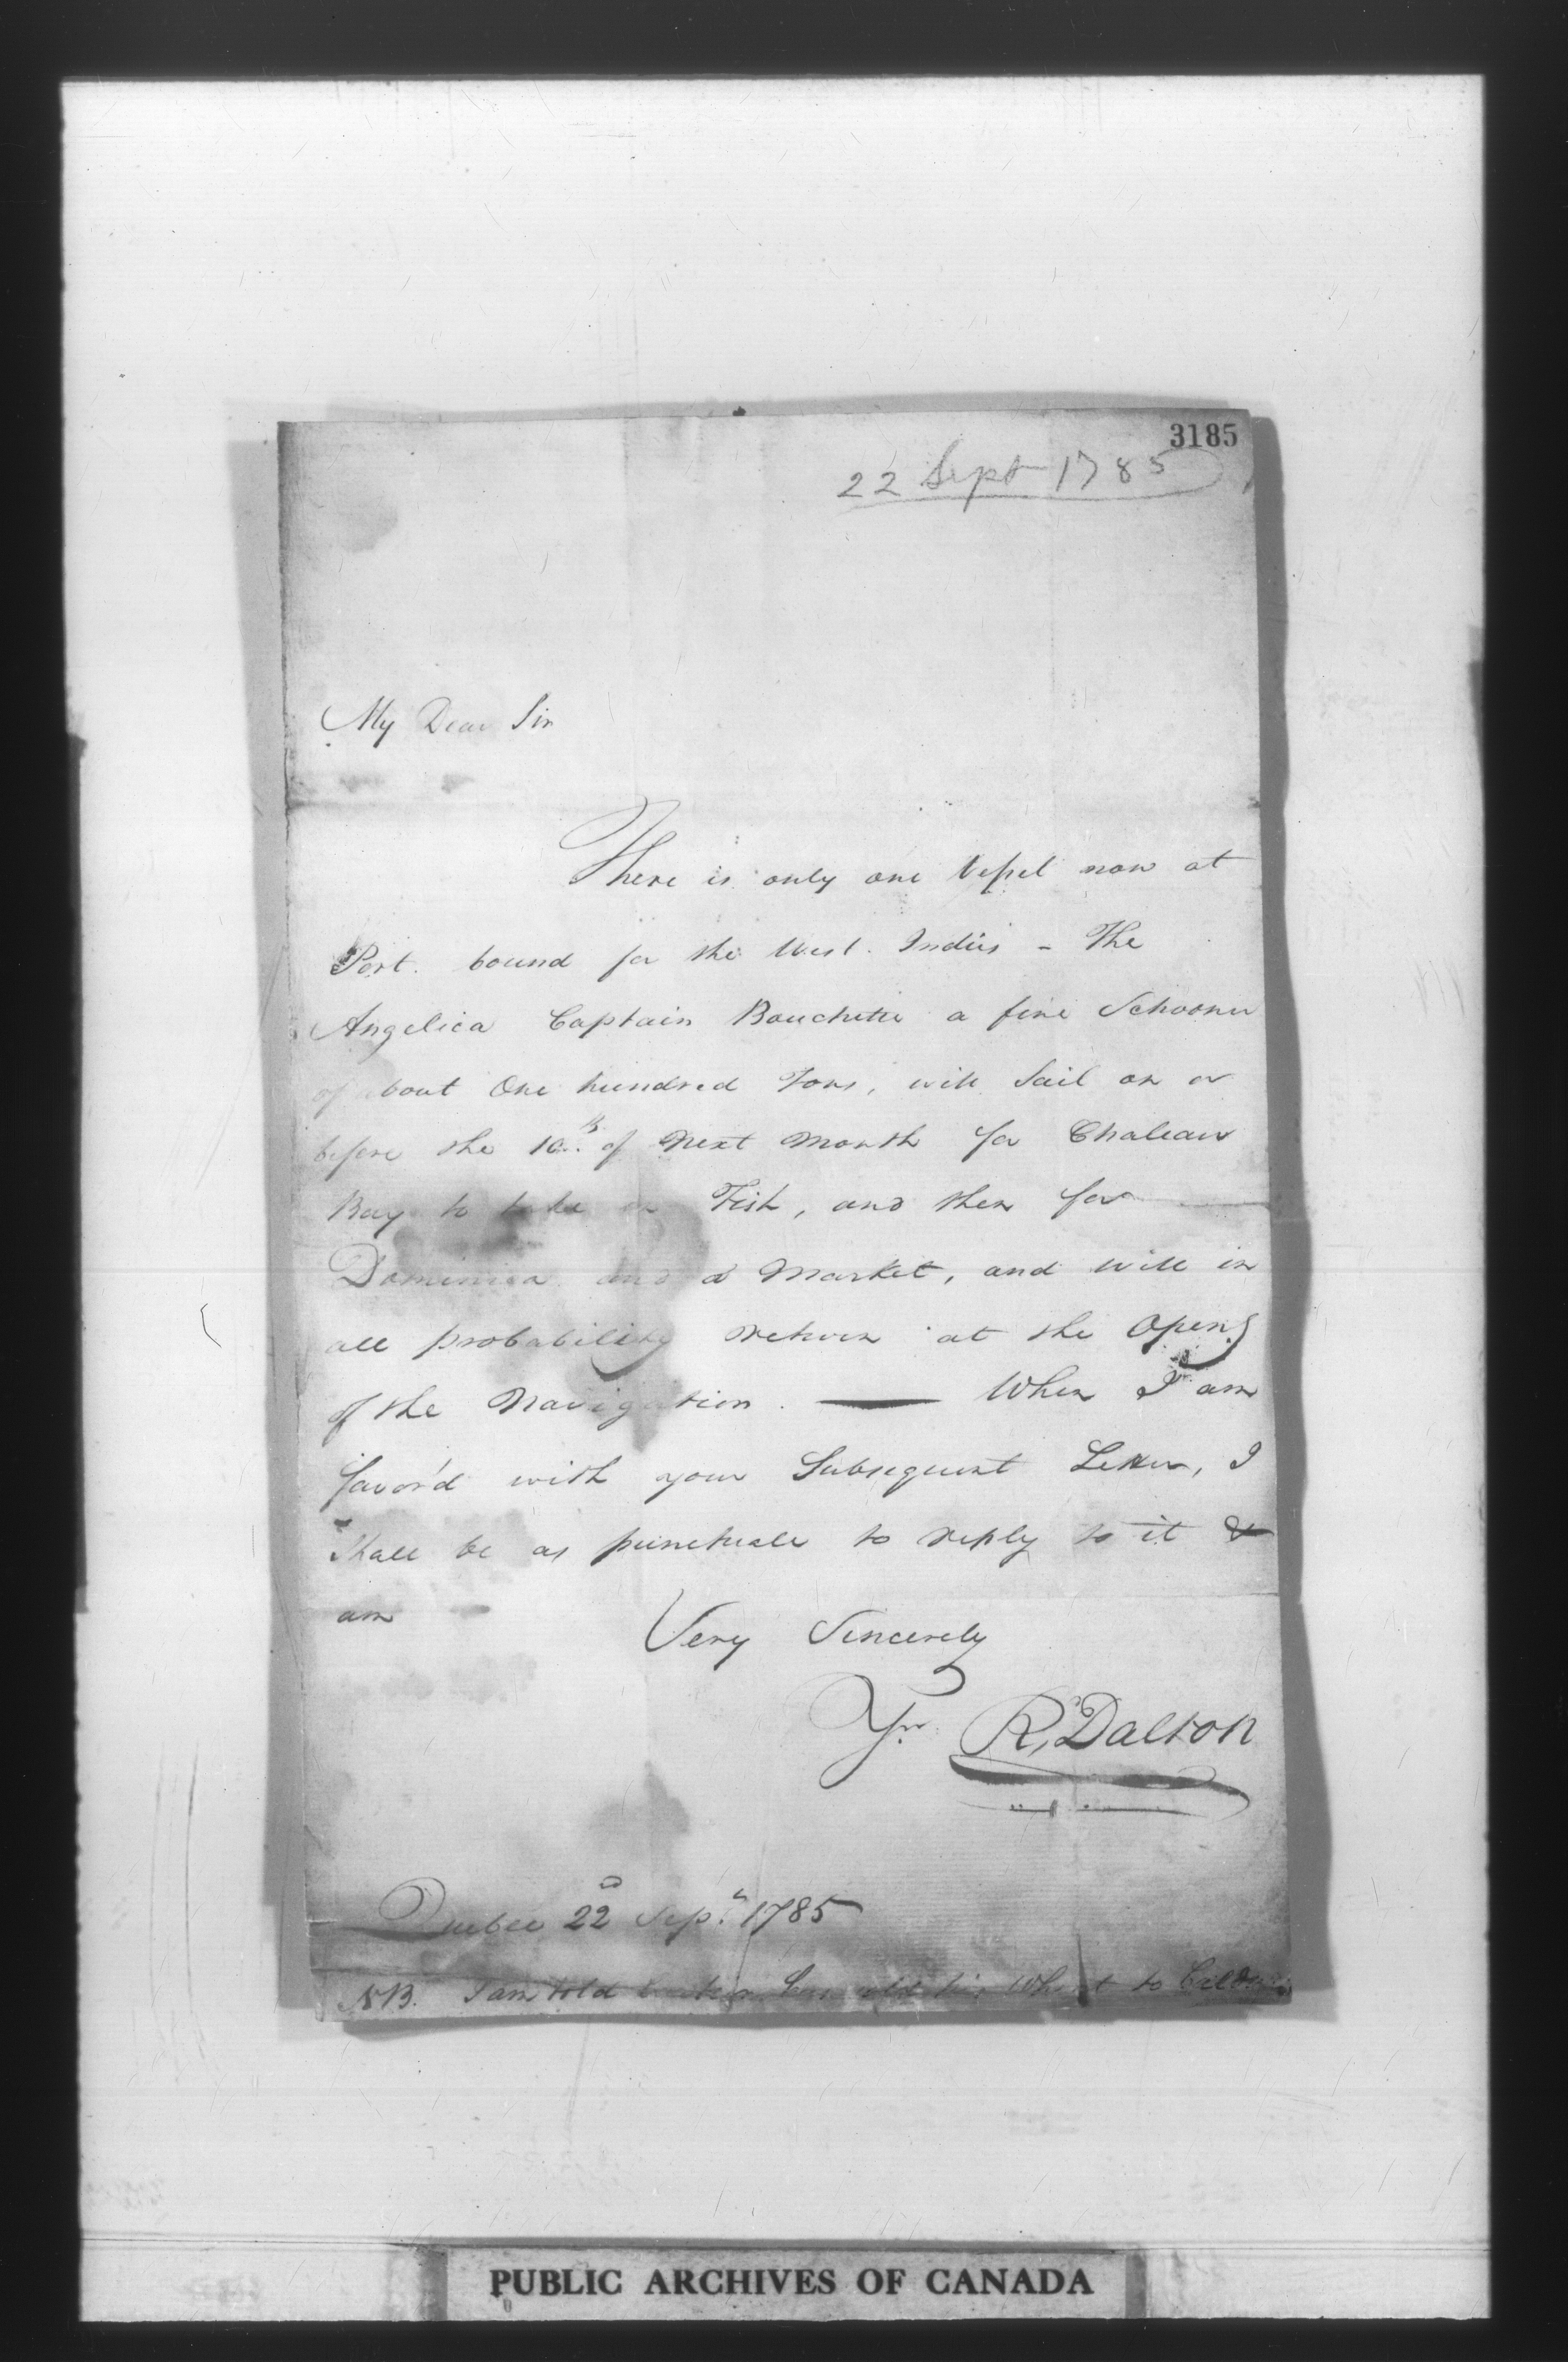 3185
22 Sept 1785
My Dear Sir
There is only one Vessel now at
Port bound for the West Indies - The
Angelica Captain Bouchette a fine Schooner
of about One hundred Tons, will Sail on or
before the 10th of Next Month for Chaleaur
Bay to take on Fish, and then for
Dominica and a Market, and will in
all probability return at the Openg
of the Navigation. — When I am
favor'd with your Subsequent Letter, I
Shall be as punctuale to reply to it &
am
Very Sincerely
Yr R, Dalton
Quebec 22d Sept 1785
NB. I am told has sold his Wheat to
PUBLIC ARCHIVES OF CANADA